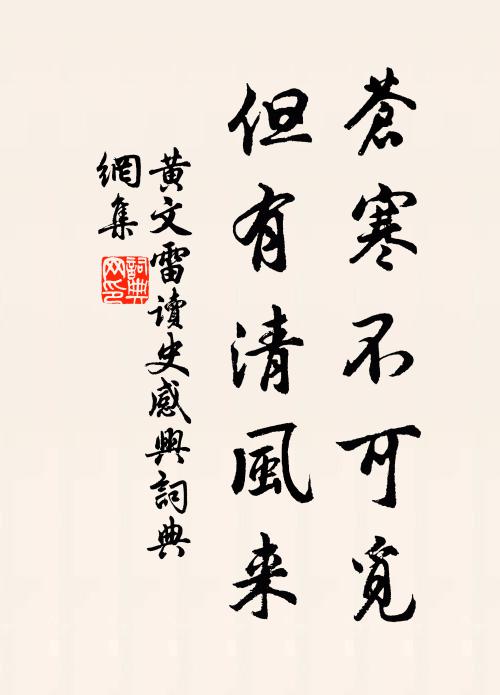 蒼寒不可覓
但有清風来
黄文雷讀史感興詞典
網集
詞典網印